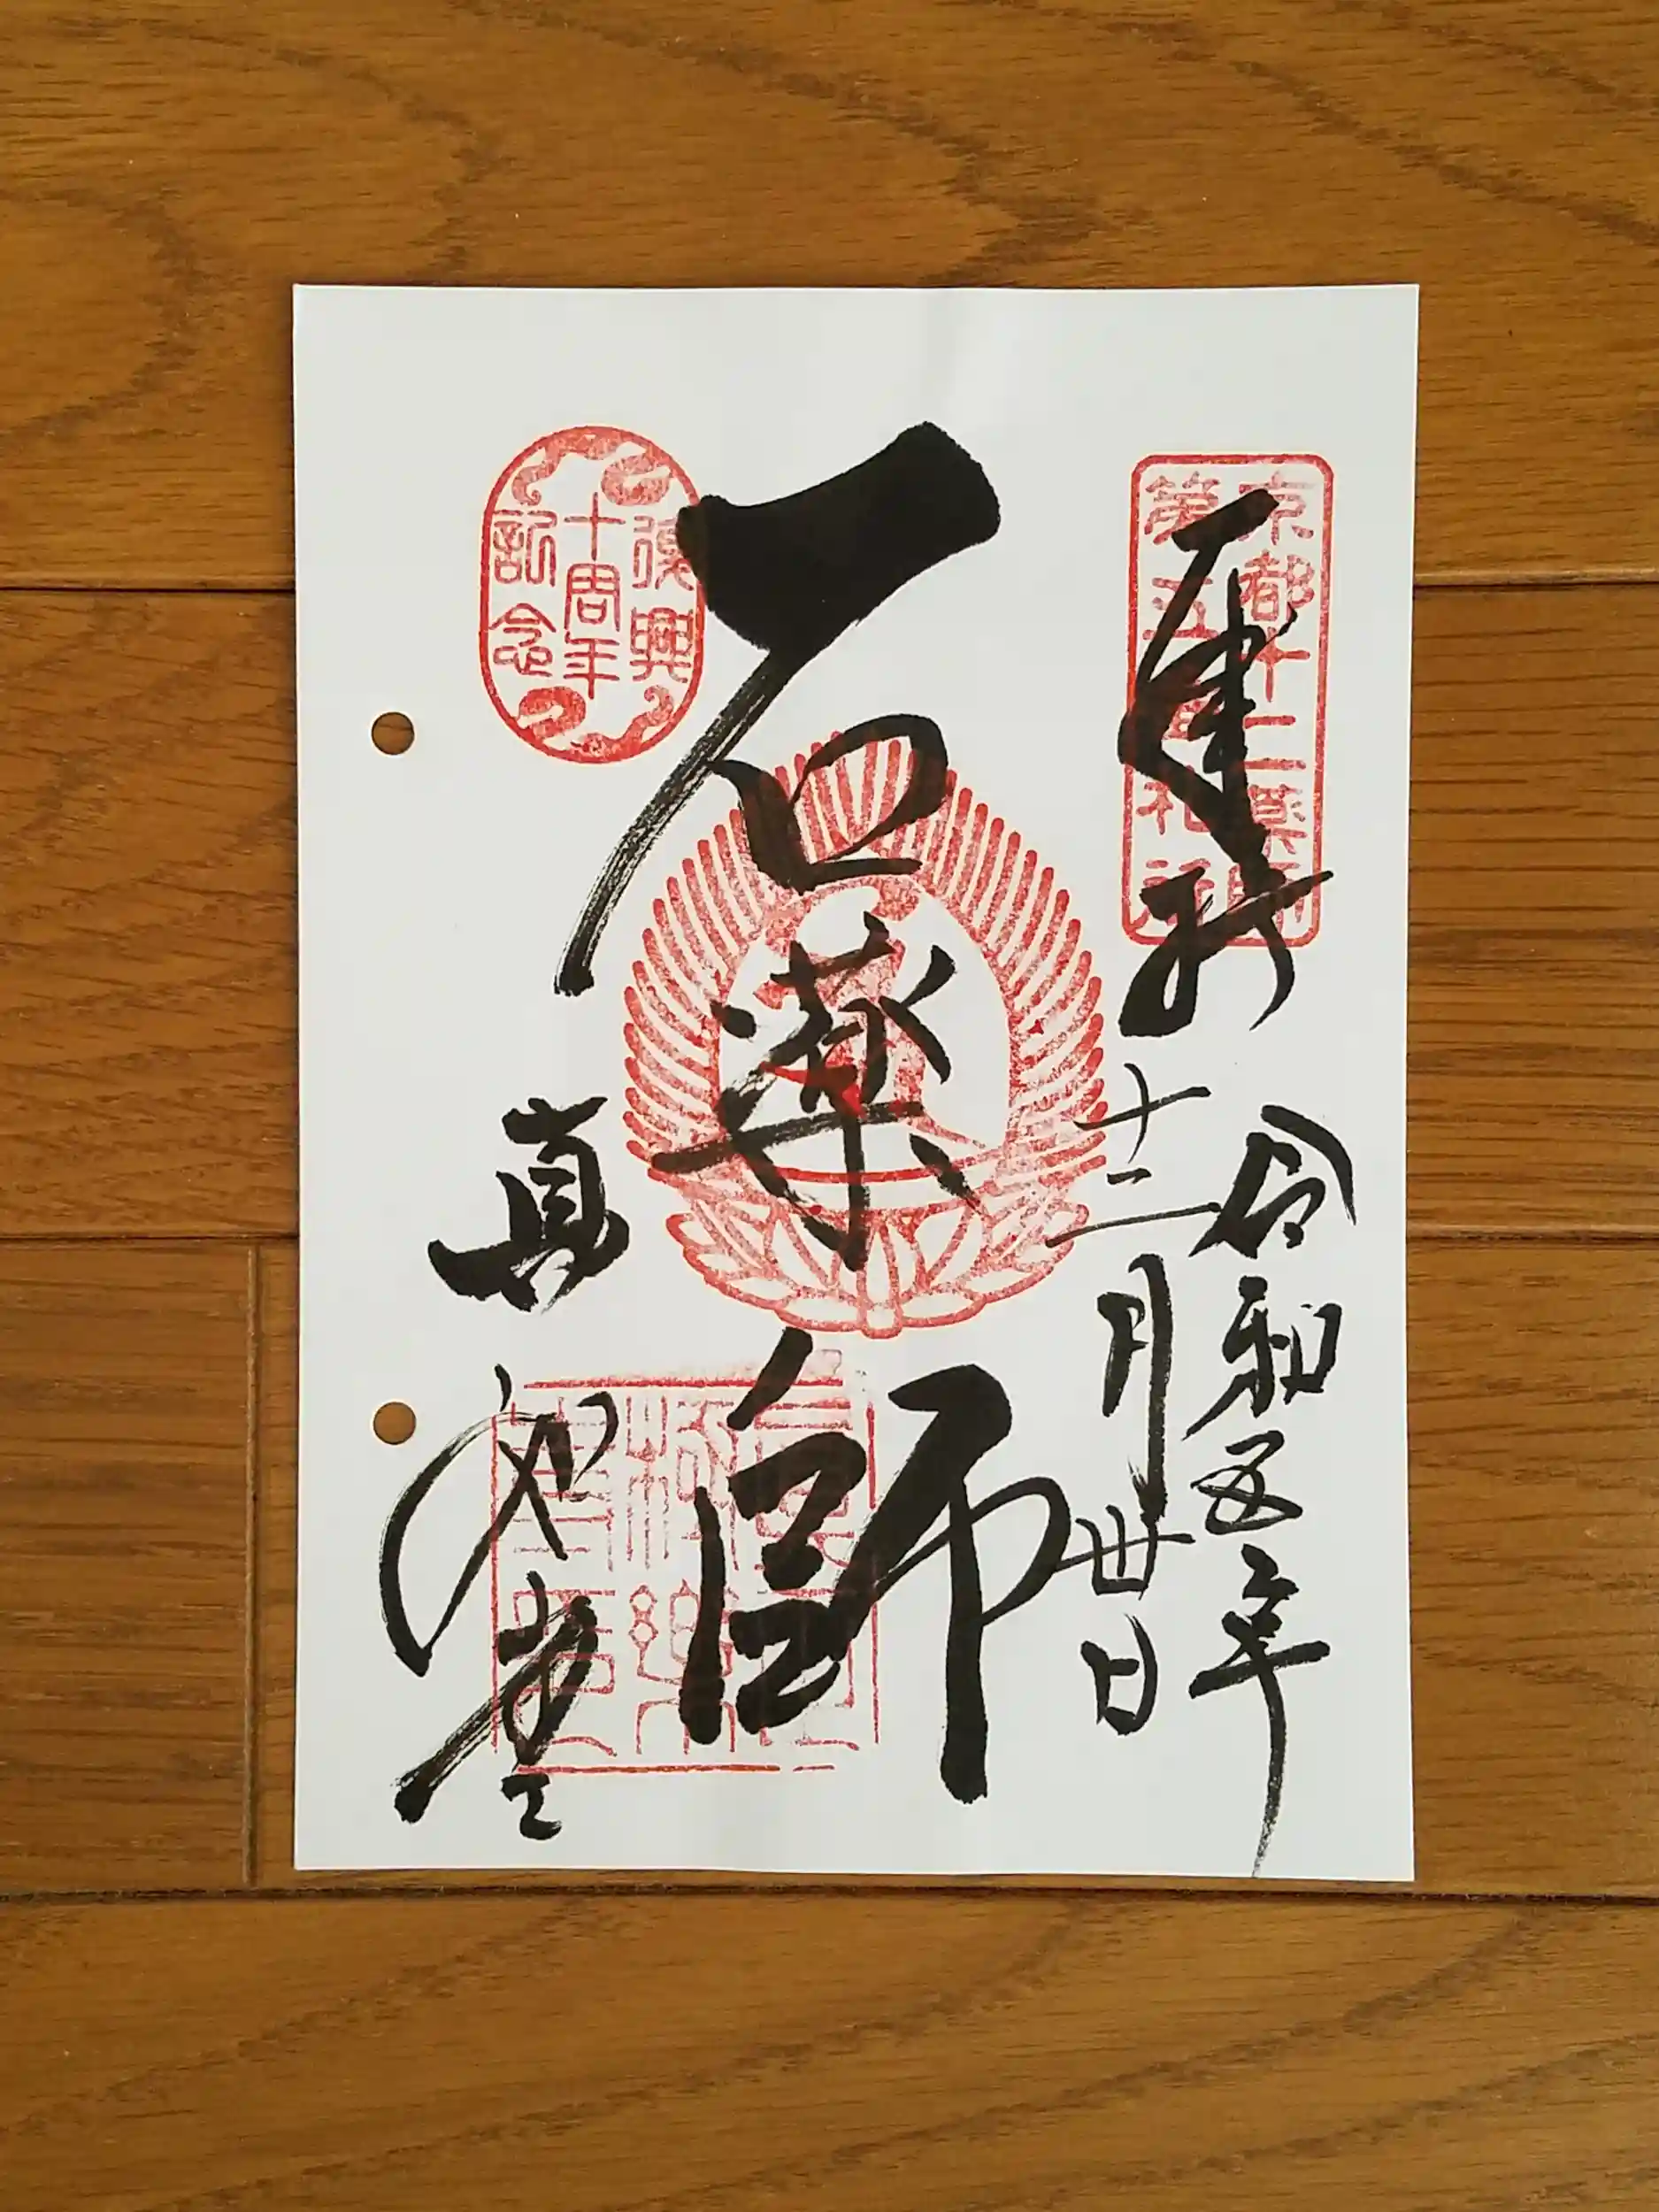 京都十二薬師
第五番札所
奉拝
令和五年
十二月卅日
石薬師
復興
十周年
記念
真如堂